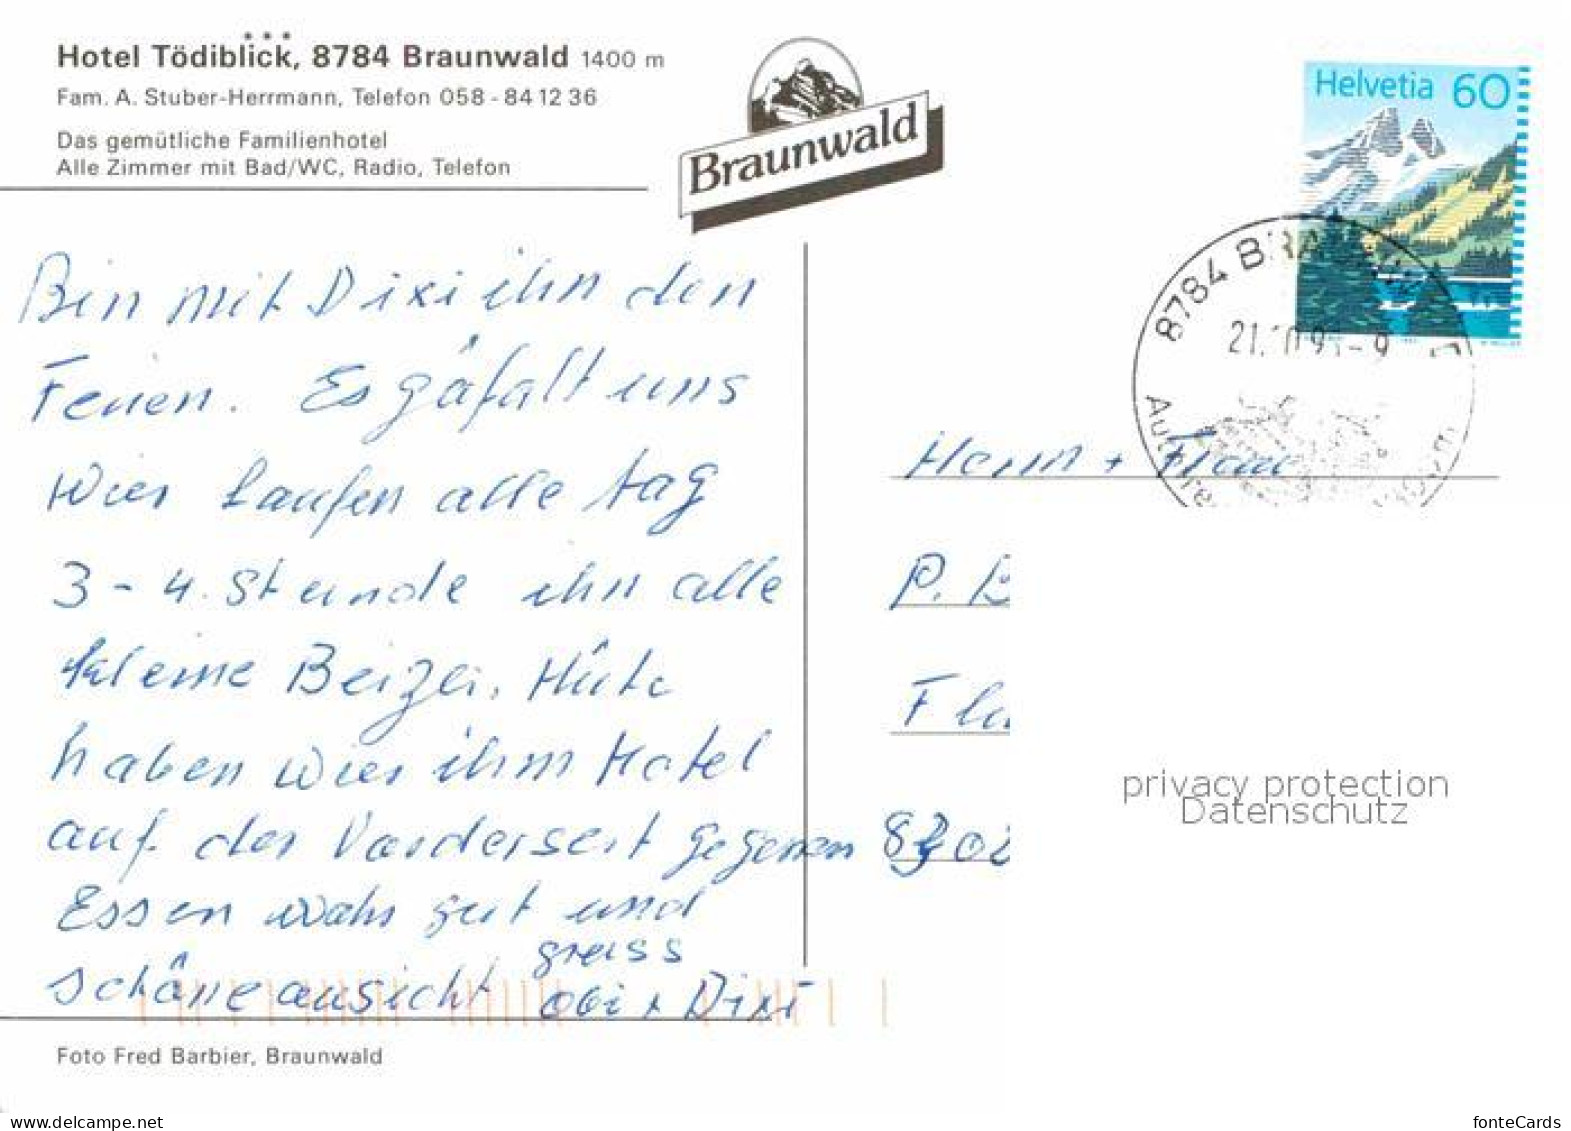 Hotel Tödiblick, 8784 Braunwald 1400 m
Fam. A. Stuber-Herrmann, Telefon 058 - 84 12 36
Das gemütliche Familienhotel
Alle Zimmer mit Bad/WC, Radio, Telefon
Braunwald
Helvetia 60
8784 BRA
21.10.9 -9
Bin mit Dixi ihn den
Ferien. Es gäfalt uns
wier laufen alle tag
3 - 4. Stunde ihn alle
kleine Beizer. Hüte
haben wier ihm Hotel
auf der Vorderseit gegessen
Essen wahr gut und
schöne aussicht gruss
Obi + Dixi
Herrn + Frau
P. B
Fla
Foto Fred Barbier, Braunwald
privacy protection
Datenschutz
www.delcampe.net
fonteCards